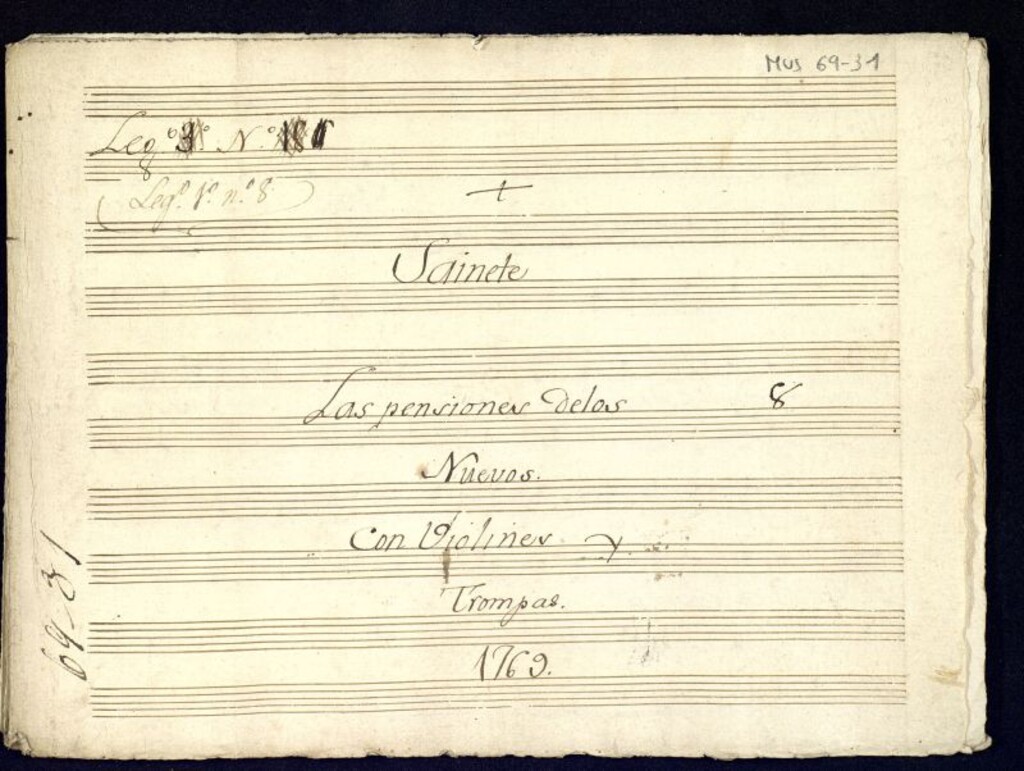 Mus 69-31
Leg.º 3º N.º
8
Leg.º 1.º n.º 8
+
Sainete
Las pensiones delos 8
Nuevos.
Con Violines y
Trompas.
1769.
69-31